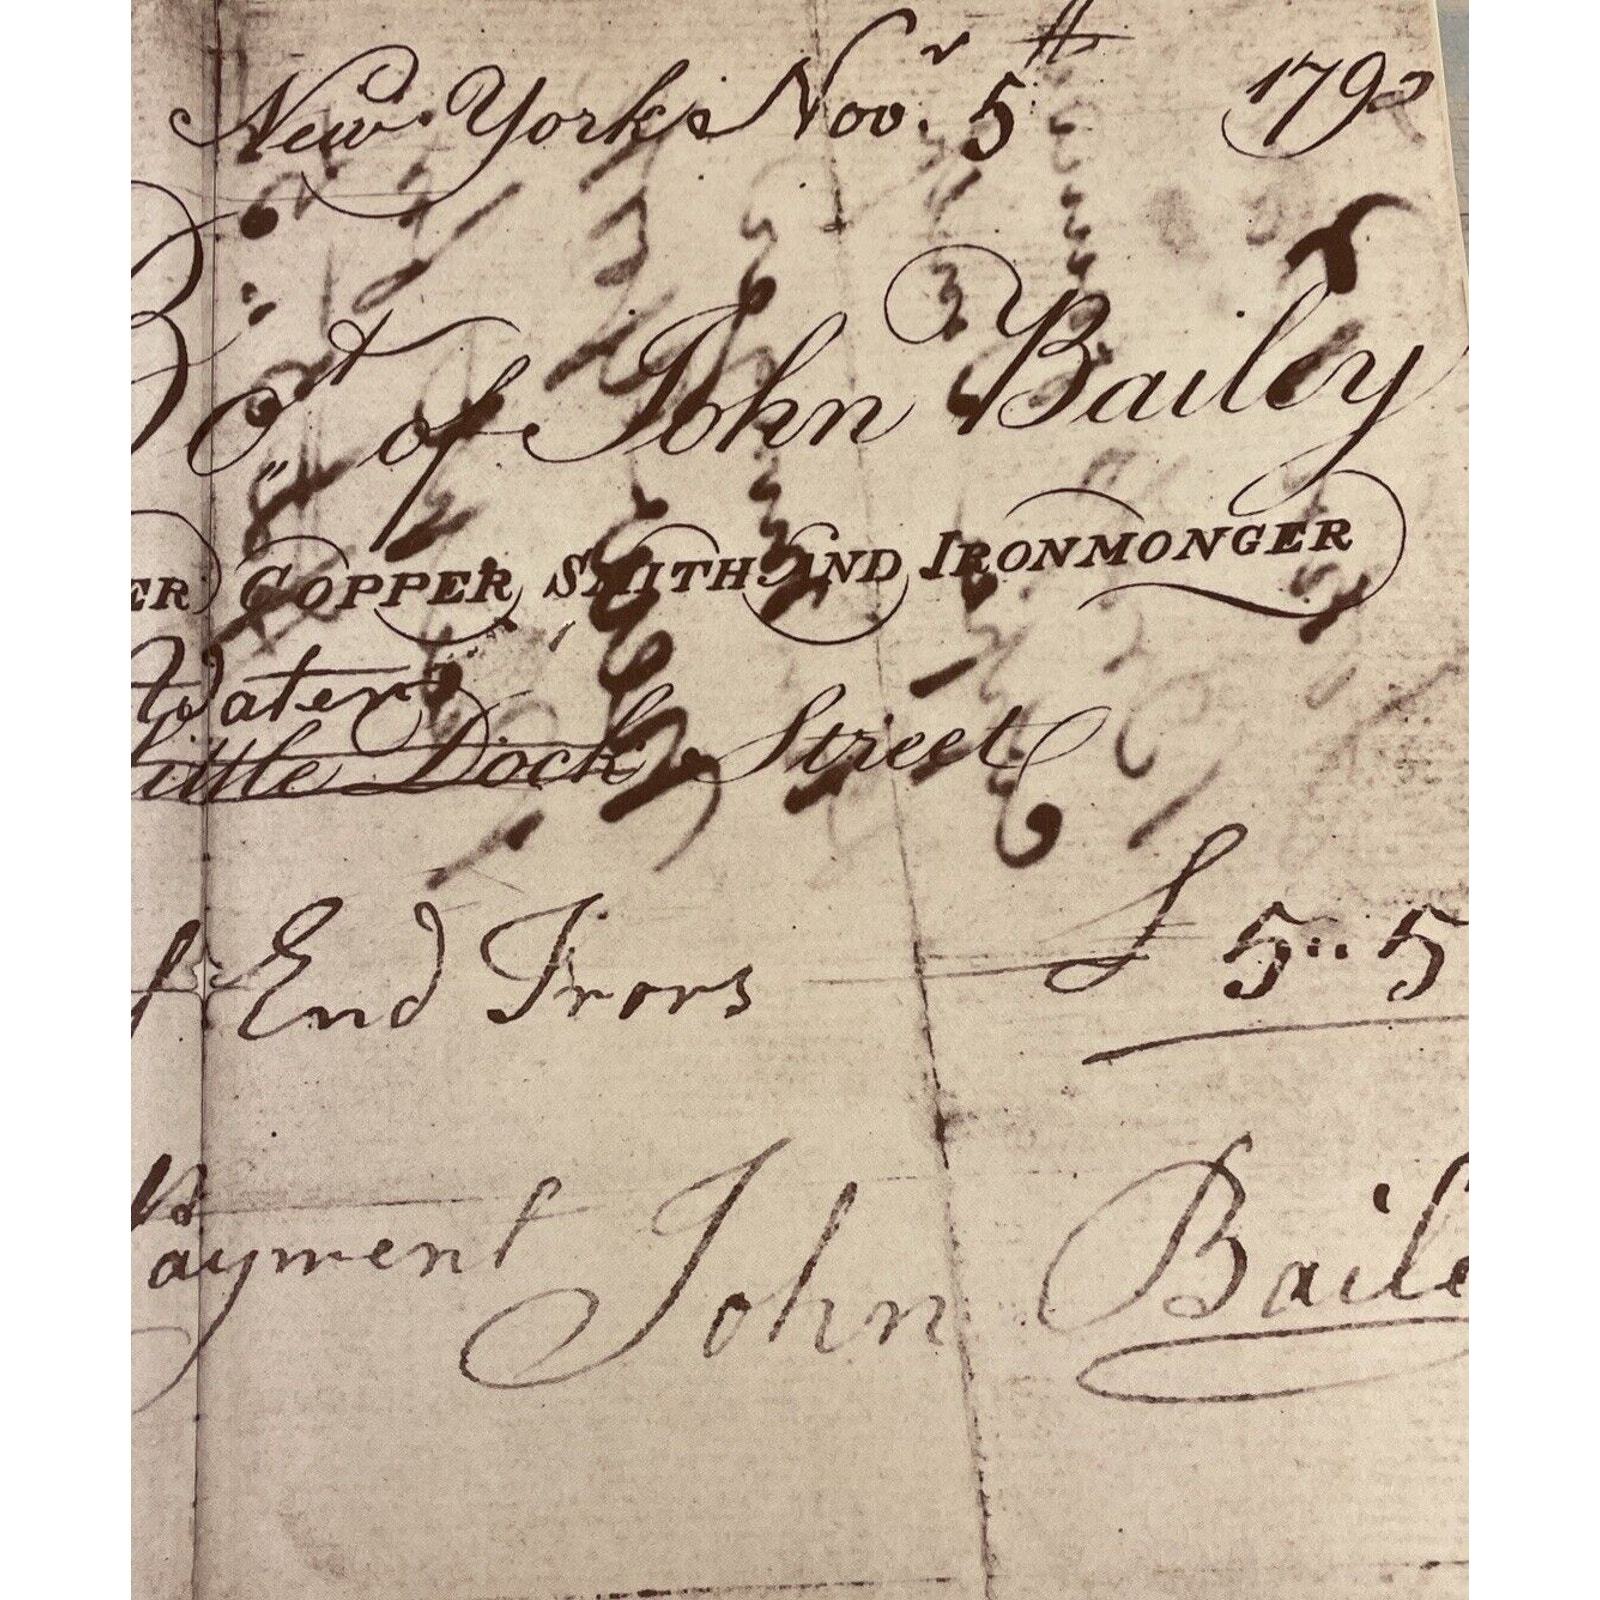 New York Novr. 5th 179
Bot of John Bailey
ER COPPER SMITH AND IRONMONGER
Water
Little Dock Street
End Irons £ 5 :: 5
Payment John Baile